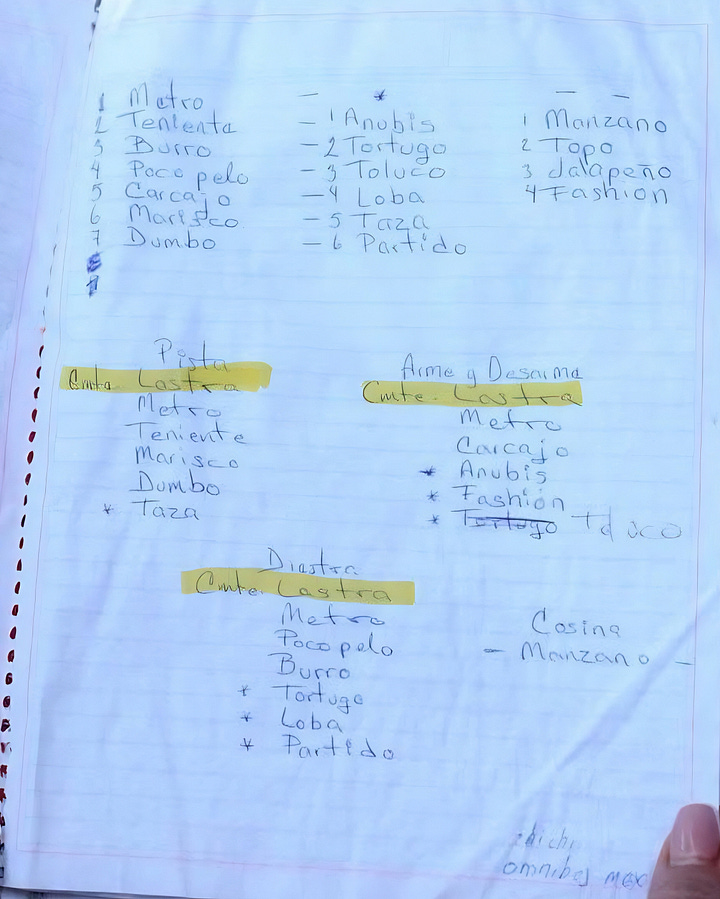 1 Metro
2 Teniente
3 Burro
4 Poco pelo
5 Carcajo
6 Marisco
7 Dumbo
— *
— 1 Anubis
— 2 Tortugo
— 3 Toluco
— 4 Loba
— 5 Taza
— 6 Partido
— —
1 Manzano
2 Topo
3 Jalapeño
4 Fashion
Pista
Cmte. Lastra
Metro
Teniente
Marisco
Dumbo
* Taza
Arme y Desarme
Cmte. Lastra
Metro
Carcajo
* Anubis
* Fashion
* Tortugo Toluco
Diestra
Cmte. Lastra
Metro
Poco pelo
Burro
* Tortugo
* Loba
* Partido
Cosina
— Manzano —
omnibus